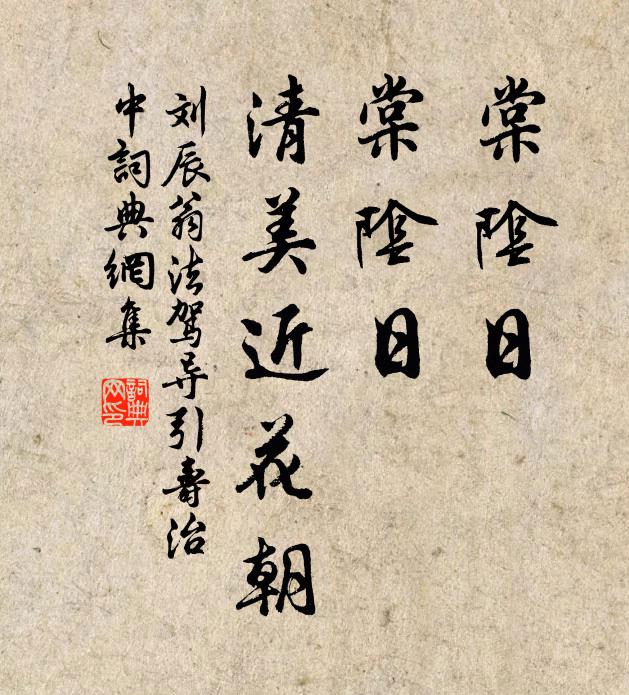 棠陰日
棠陰日
清美近花朝
刘辰翁法驾导引壽治
中詞典網集
詞典网印